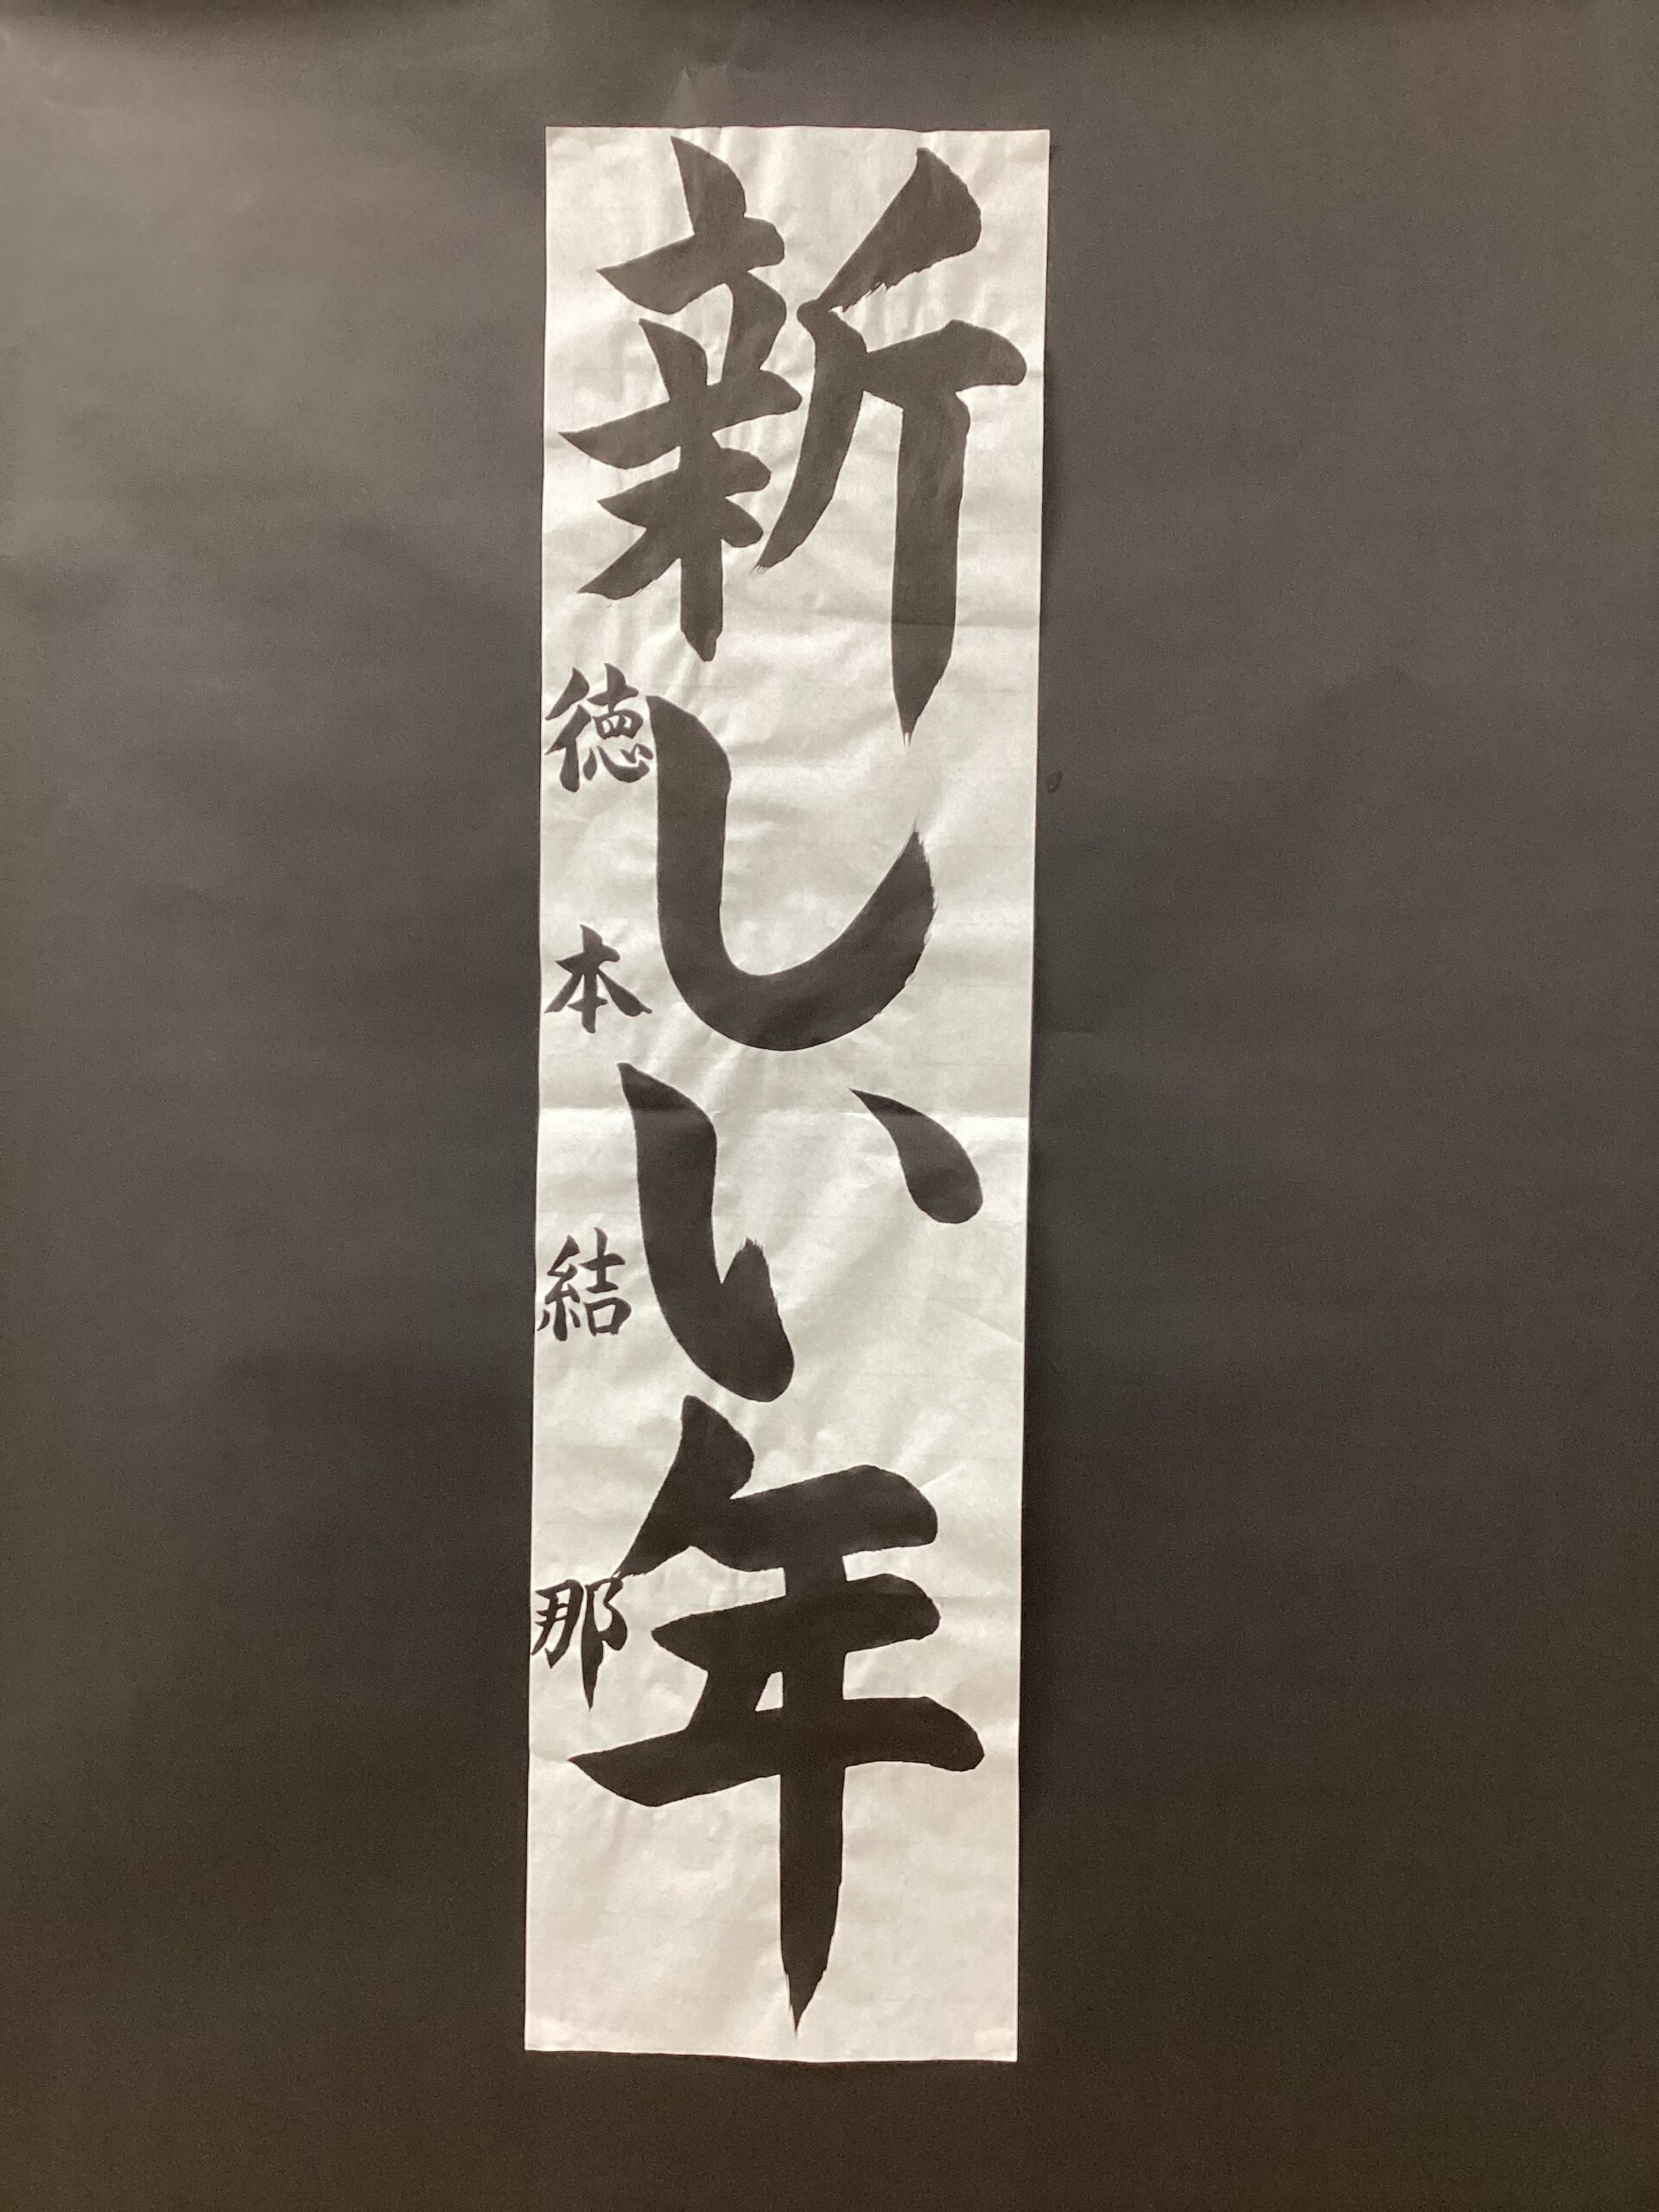 新しい年
徳本結那